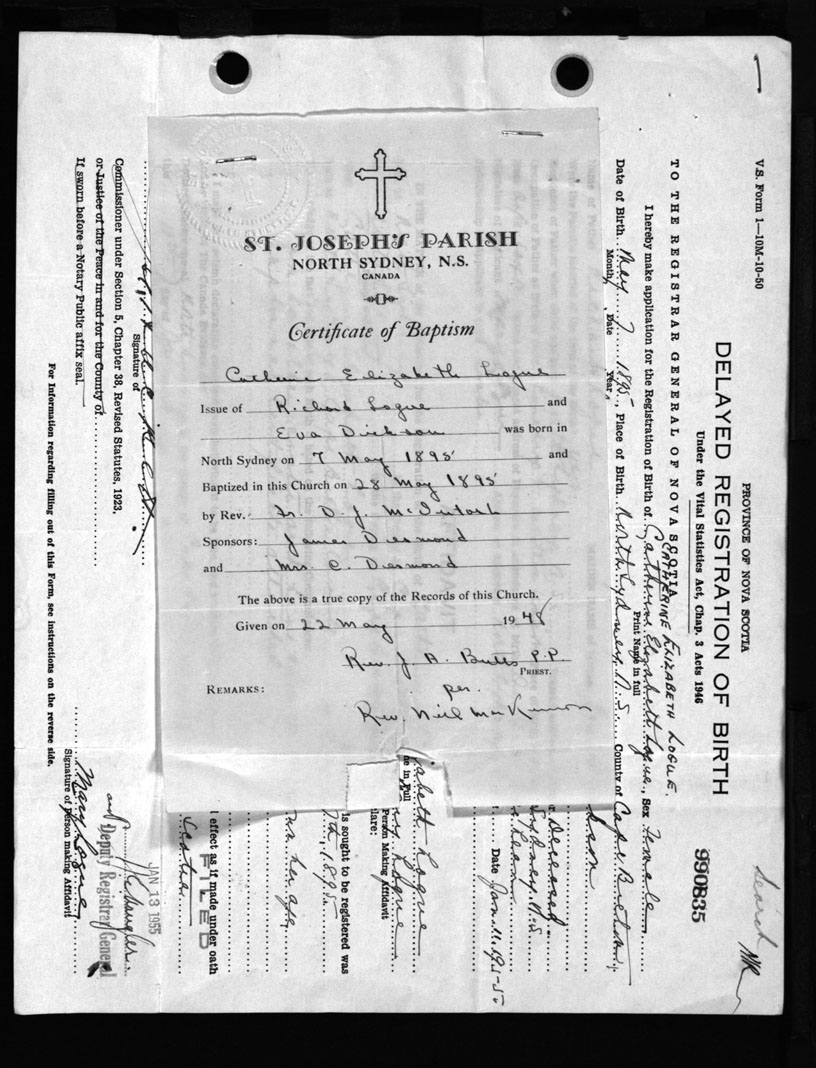 ST. JOSEPH'S PARISH
NORTH SYDNEY, N.S.
CANADA
Certificate of Baptism
Catherine Elizabeth Logue
Issue of Richard Logue and
Eva Dickson was born in
North Sydney on 7 May 1895 and
Baptized in this Church on 28 May 1895
by Rev. Fr. D. J. McIntosh
Sponsors: James Desmond
and Mrs. C. Desmond
The above is a true copy of the Records of this Church.
Given on 22 May 1948
Rev. J. A. Butts P.P.
PRIEST.
REMARKS:
per.
Rev. Neil MacKinnon
V.S. Form 1—10M-10-50
PROVINCE OF NOVA SCOTIA
DELAYED REGISTRATION OF BIRTH
990835
Search
Under the Vital Statistics Act, Chap. 3 Acts 1946
TO THE REGISTRAR GENERAL OF NOVA SCOTIA
CATHERINE ELIZABETH LOGUE.
I hereby make application for the Registration of Birth of Catherine Elizabeth Logue, Sex Female
Print Name in full
Date of Birth May 7 1895, Place of Birth North Sydney N.S. County of Cape Breton
Month Date Year
Deceased
Sydney N.S.
Date Jan. 11, 1955
Elizabeth Logue
me in Full
Mary Logue
Person Making Affidavit
lare:
is sought to be registered was
7th, 1895
l effect as if made under oath
FILED
Signature of
Commissioner under Section 5, Chapter 38, Revised Statutes, 1923.
or Justice of the Peace in and for the County of
If sworn before a Notary Public affix seal.
JAN 13 1955
Deputy Registrar General
Mary Logue
Signature of person making Affidavit
For Information regarding filling out of this Form, see instructions on the reverse side.